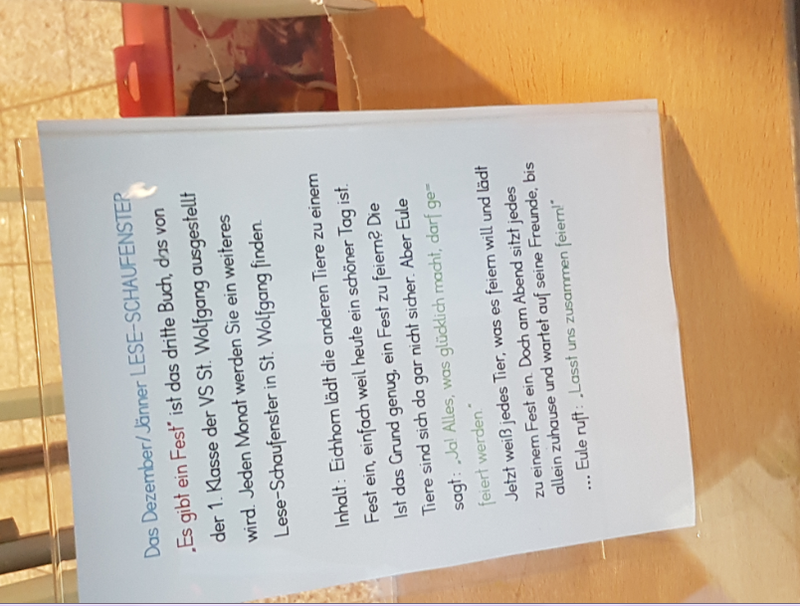 Das Dezember/Jänner LESE-SCHAUFENSTER
„Es gibt ein Fest" ist das dritte Buch, das von
der 1. Klasse der VS St. Wolfgang ausgestellt
wird. Jeden Monat werden Sie ein weiteres
Lese-Schaufenster in St. Wolfgang finden.
Inhalt: Eichhorn lädt die anderen Tiere zu einem
Fest ein, einfach weil heute ein schöner Tag ist.
Ist das Grund genug, ein Fest zu feiern? Die
Tiere sind sich da gar nicht sicher. Aber Eule
sagt: „Ja! Alles, was glücklich macht, darf ge=
feiert werden."
Jetzt weiß jedes Tier, was es feiern will und lädt
zu einem Fest ein. Doch am Abend sitzt jedes
allein zuhause und wartet auf seine Freunde, bis
... Eule ruft: „Lasst uns zusammen feiern!"